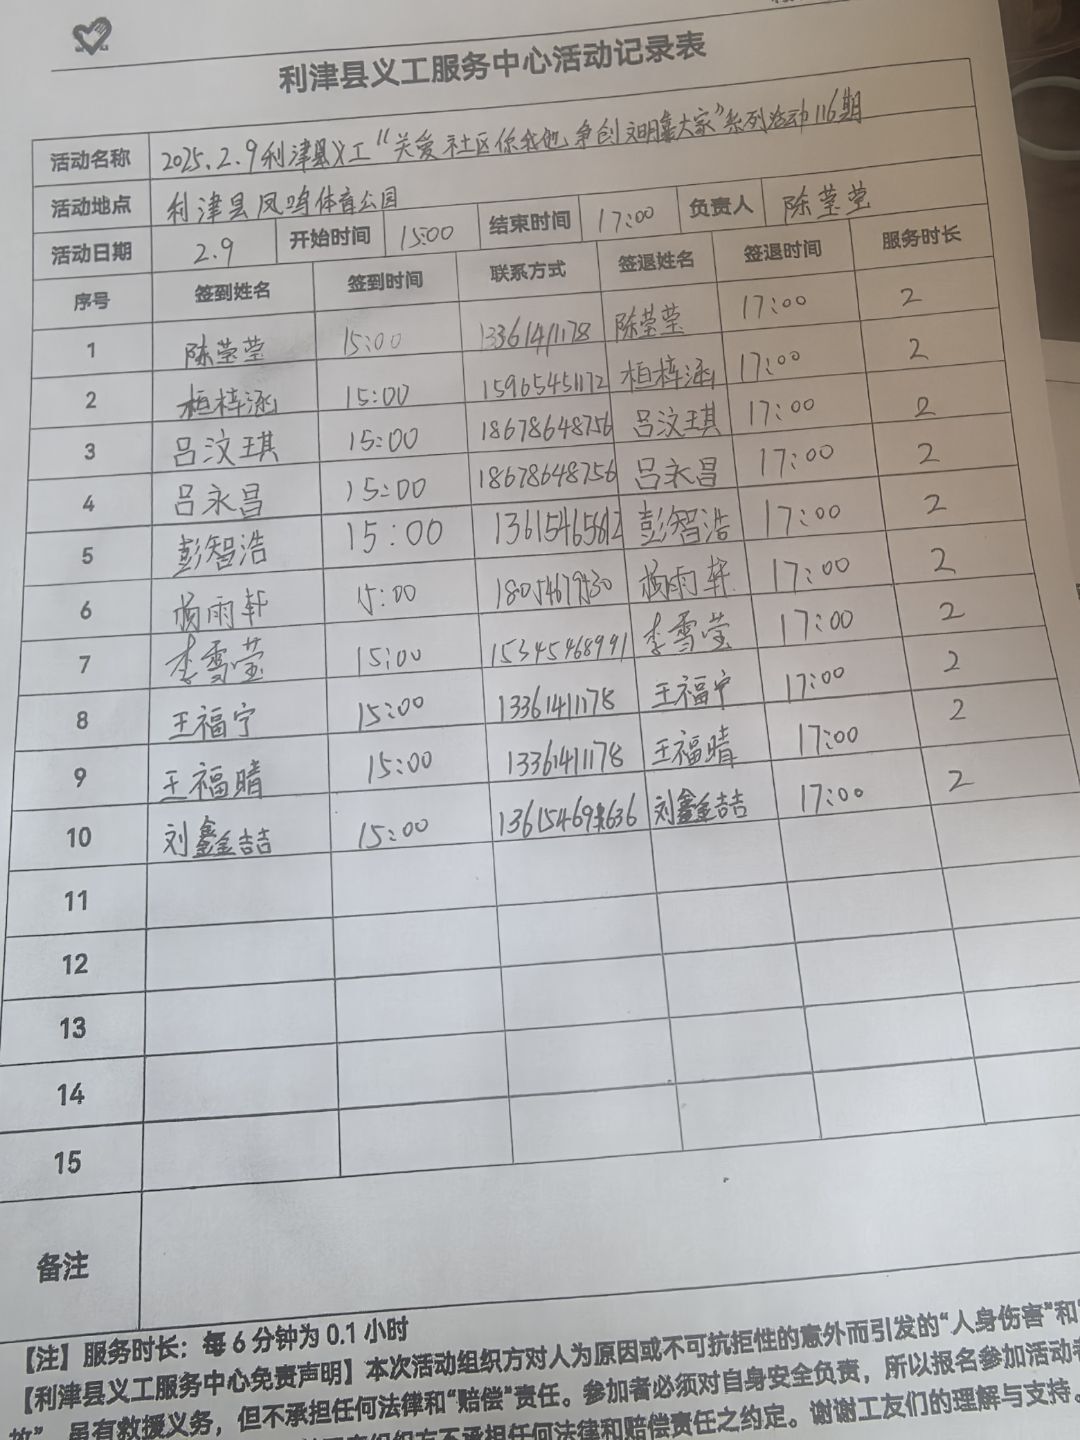 利津县义工服务中心活动记录表
活动名称 2025.2.9利津县义工“关爱社区你我他,争创文明靠大家”系列活动116期
活动地点 利津县凤鸣体育公园
活动日期 2.9 开始时间 15:00 结束时间 17:00 负责人 陈莹莹
序号 签到姓名 签到时间 联系方式 签退姓名 签退时间 服务时长
1 陈莹莹 15:00 13361411178 陈莹莹 17:00 2
2 桓梓涵 15:00 15965451172 桓梓涵 17:00 2
3 吕汶琪 15:00 18678648756 吕汶琪 17:00 2
4 吕永昌 15:00 18678648756 吕永昌 17:00 2
5 彭智浩 15:00 13615465612 彭智浩 17:00 2
6 杨雨轩 15:00 杨雨轩 17:00 2
7 李雪莹 15:00 15345468991 李雪莹 17:00 2
8 王福宁 15:00 13361411178 王福宁 17:00 2
9 王福晴 15:00 13361411178 王福晴 17:00 2
10 刘鑫喆 15:00 刘鑫喆 17:00 2
11
12
13
14
15
备注
【注】服务时长：每6分钟为0.1小时
【利津县义工服务中心免责声明】本次活动组织方对人为原因或不可抗拒性的意外而引发的“人身伤害”和
故”，虽有救援义务，但不承担任何法律和“赔偿”责任。参加者必须对自身安全负责，所以报名参加活动者
组织方不承担任何法律和赔偿责任之约定。谢谢工友们的理解与支持。